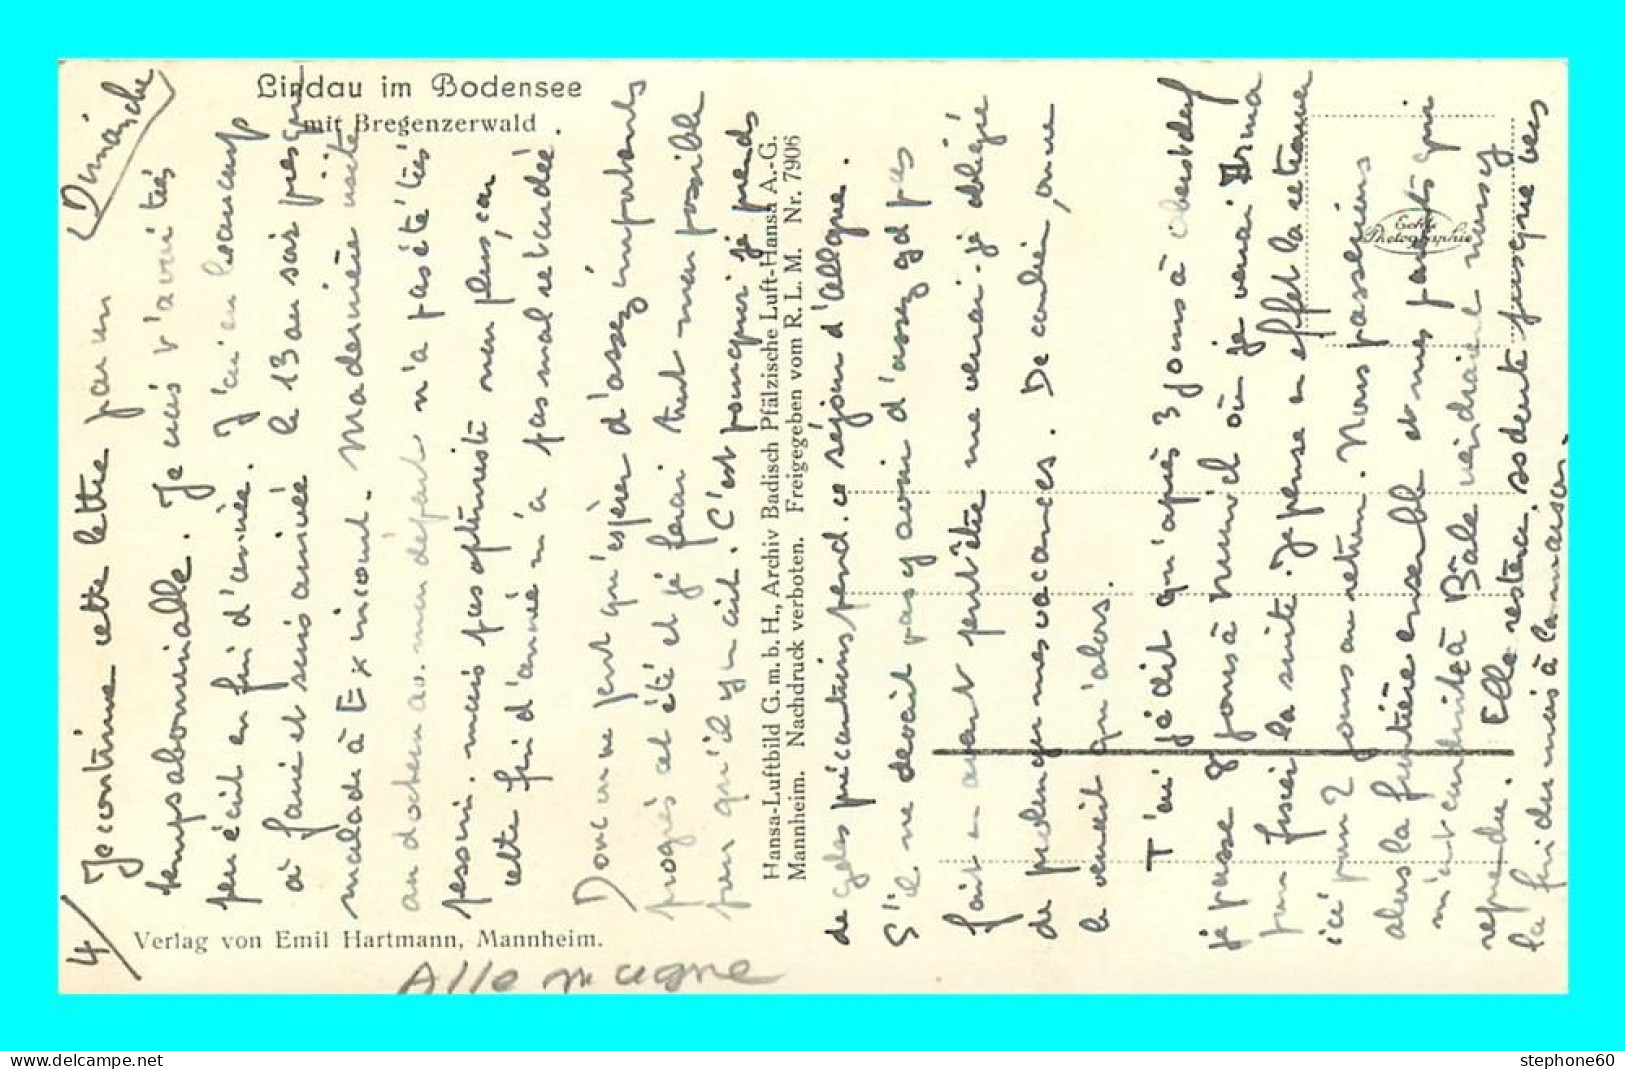 Lindau im Bodensee
mit Bregenzerwald
4/
Dimanche
Je continue cette lettre par un
temps abominable. Je vais t'avoir très
peu écrit en fin d'année. J'ai eu beaucoup
à faire et suis arrivée le 13 au soir presqu
malade à Ex incourt. Ma dernière visite
au docteur av. mon départ n'a pas été très
pessim. mais pas optimiste non plus, car
cette fin d'année m'a pas mal retardée.
Donc on ne peut qu'espérer d'assez importants
progrès cet été et je ferai tout mon possible
pour qu'il y en ait. C'est pourquoi je prends
de gdes précautions pend. ce séjour d'Allgne.
S'il ne devait pas y avoir d'assez gd pas
fait en avant peut être me verrai-je obligée
de prolonger mes vacances. De combien, on ne
le verrait qu'alors.
T'ai je dit qu'après 3 jours à Oberstdorf
je passe 8 jours à Munich où je verrai Irma
pour la suite. Je pense en effet la retrouver
ici pour 2 jours au retour. Nous passerions
alors la frontière ensemble et mes parents qui
m'ont conduite à Bâle viendraient nous y
reprendre. Elle restera sans doute jusque vers
la fin du mois à la maison.
Verlag von Emil Hartmann, Mannheim.
Allemagne
Hansa-Luftbild G. m. b. H., Archiv Badisch Pfälzische Luft-Hansa A.-G.
Mannheim. Nachdruck verboten. Freigegeben vom R. L. M. Nr. 7906
Echte
Photographie
delcampe.net
stephone60